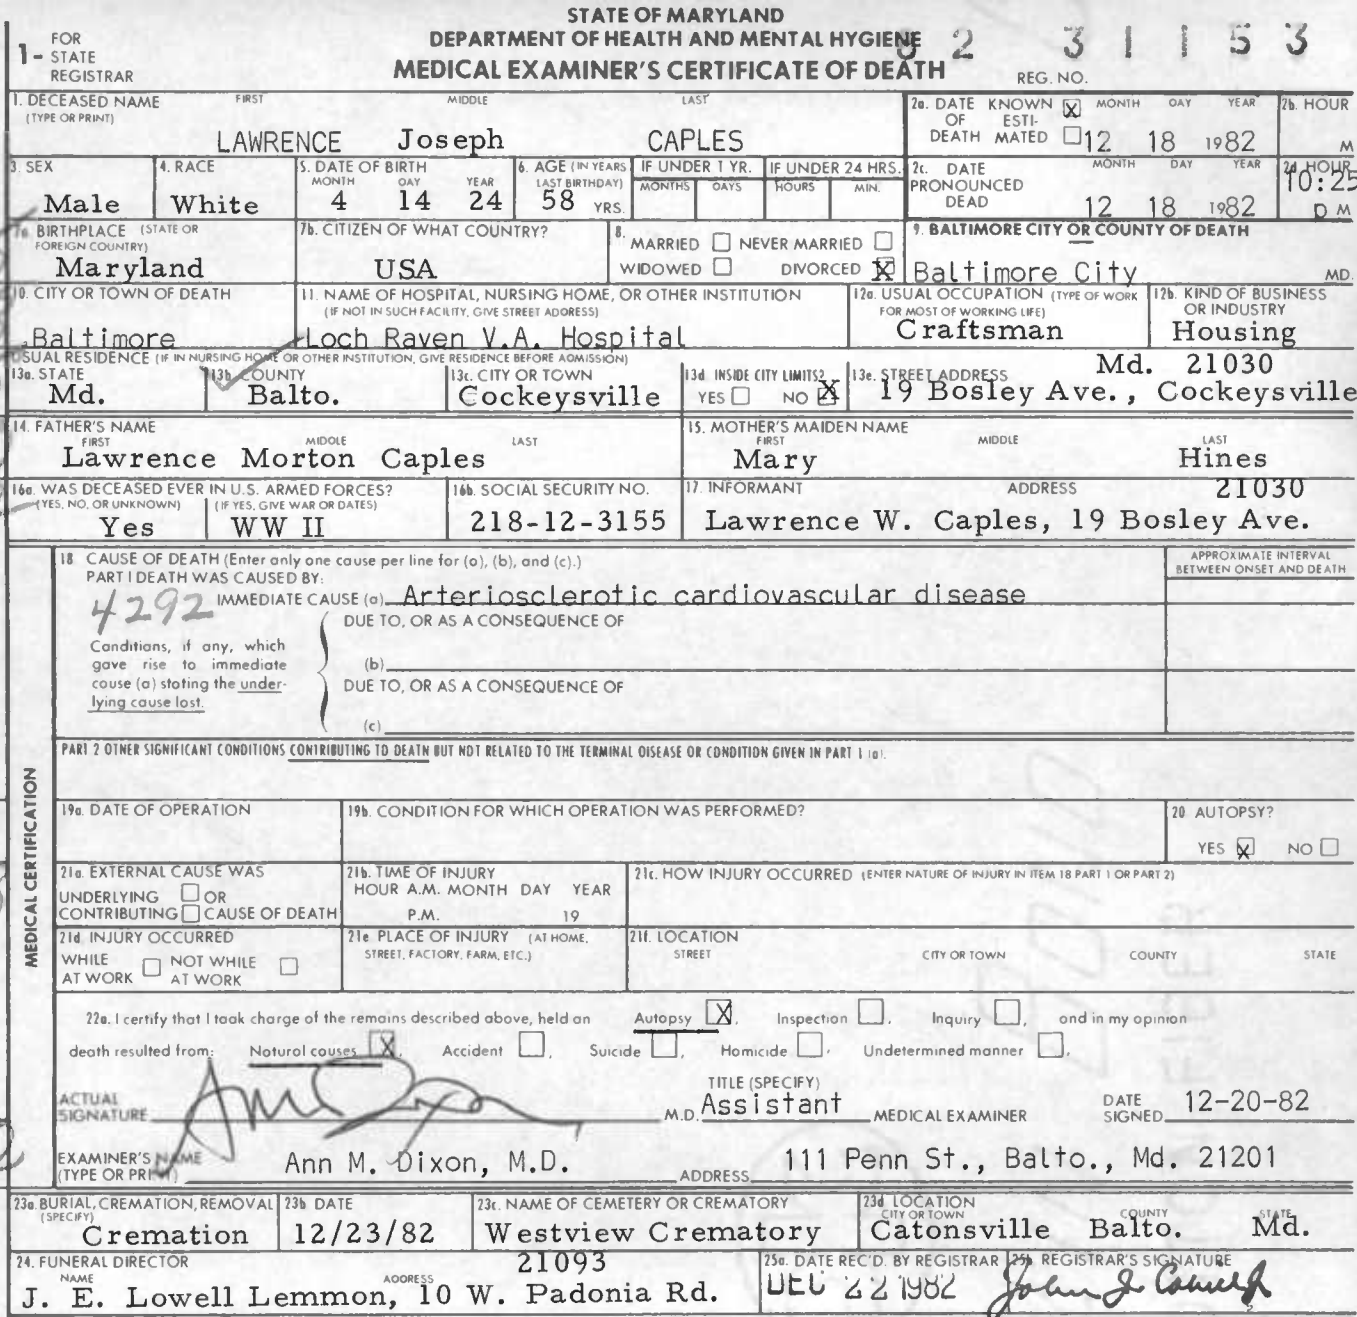 STATE OF MARYLAND
DEPARTMENT OF HEALTH AND MENTAL HYGIENE
MEDICAL EXAMINER'S CERTIFICATE OF DEATH
1- FOR STATE REGISTRAR
REG. NO. 82 31153
1. DECEASED NAME (TYPE OR PRINT) FIRST MIDDLE LAST
LAWRENCE Joseph CAPLES
2a. DATE OF DEATH KNOWN X ESTIMATED MONTH DAY YEAR
12 18 1982
2b. HOUR M
3. SEX
Male
4. RACE
White
5. DATE OF BIRTH MONTH DAY YEAR
4 14 24
6. AGE (IN YEARS LAST BIRTHDAY)
58 YRS.
IF UNDER 1 YR. MONTHS DAYS
IF UNDER 24 HRS. HOURS MIN.
2c. DATE PRONOUNCED DEAD MONTH DAY YEAR
12 18 1982
2d HOUR
10:25 p M
7a BIRTHPLACE (STATE OR FOREIGN COUNTRY)
Maryland
7b. CITIZEN OF WHAT COUNTRY?
USA
8. MARRIED NEVER MARRIED
WIDOWED DIVORCED X
9. BALTIMORE CITY OR COUNTY OF DEATH
Baltimore City MD.
10. CITY OR TOWN OF DEATH
Baltimore
11. NAME OF HOSPITAL, NURSING HOME, OR OTHER INSTITUTION
(IF NOT IN SUCH FACILITY, GIVE STREET ADDRESS)
Loch Raven V.A. Hospital
12a. USUAL OCCUPATION (TYPE OF WORK FOR MOST OF WORKING LIFE)
Craftsman
12b. KIND OF BUSINESS OR INDUSTRY
Housing
USUAL RESIDENCE (IF IN NURSING HOME OR OTHER INSTITUTION, GIVE RESIDENCE BEFORE ADMISSION)
13a. STATE
Md.
13b. COUNTY
Balto.
13c. CITY OR TOWN
Cockeysville
13d. INSIDE CITY LIMITS?
YES NO X
13e. STREET ADDRESS
Md. 21030
19 Bosley Ave., Cockeysville
14. FATHER'S NAME FIRST MIDDLE LAST
Lawrence Morton Caples
15. MOTHER'S MAIDEN NAME FIRST MIDDLE LAST
Mary Hines
16a. WAS DECEASED EVER IN U.S. ARMED FORCES?
(YES, NO, OR UNKNOWN) (IF YES, GIVE WAR OR DATES)
Yes WW II
16b. SOCIAL SECURITY NO.
218-12-3155
17. INFORMANT ADDRESS
21030
Lawrence W. Caples, 19 Bosley Ave.
MEDICAL CERTIFICATION
18 CAUSE OF DEATH (Enter only one cause per line for (a), (b), and (c).)
PART I DEATH WAS CAUSED BY:
APPROXIMATE INTERVAL BETWEEN ONSET AND DEATH
4292 IMMEDIATE CAUSE (a) Arteriosclerotic cardiovascular disease
DUE TO, OR AS A CONSEQUENCE OF
Conditions, if any, which
gave rise to immediate
cause (a) stating the under-
lying cause last.
(b)
DUE TO, OR AS A CONSEQUENCE OF
(c)
PART 2 OTHER SIGNIFICANT CONDITIONS CONTRIBUTING TO DEATH BUT NOT RELATED TO THE TERMINAL DISEASE OR CONDITION GIVEN IN PART 1 (a).
19a. DATE OF OPERATION
19b. CONDITION FOR WHICH OPERATION WAS PERFORMED?
20 AUTOPSY?
YES X NO
21a. EXTERNAL CAUSE WAS
UNDERLYING OR
CONTRIBUTING CAUSE OF DEATH
21b. TIME OF INJURY
HOUR A.M. MONTH DAY YEAR
P.M. 19
21c. HOW INJURY OCCURRED (ENTER NATURE OF INJURY IN ITEM 18 PART 1 OR PART 2)
21d INJURY OCCURRED
WHILE AT WORK NOT WHILE AT WORK
21e PLACE OF INJURY (AT HOME, STREET, FACTORY, FARM, ETC.)
21f. LOCATION
STREET CITY OR TOWN COUNTY STATE
22a. I certify that I took charge of the remains described above, held an Autopsy X, Inspection, Inquiry, and in my opinion
death resulted from: Natural causes X, Accident, Suicide, Homicide, Undetermined manner.
ACTUAL SIGNATURE Ann Dixon M.D.
TITLE (SPECIFY)
Assistant MEDICAL EXAMINER
DATE SIGNED 12-20-82
EXAMINER'S NAME (TYPE OR PRINT) Ann M. Dixon, M.D.
ADDRESS 111 Penn St., Balto., Md. 21201
23a. BURIAL, CREMATION, REMOVAL (SPECIFY)
Cremation
23b DATE
12/23/82
23c. NAME OF CEMETERY OR CREMATORY
Westview Crematory
23d LOCATION CITY OR TOWN COUNTY STATE
Catonsville Balto. Md.
24. FUNERAL DIRECTOR
NAME ADDRESS
21093
J. E. Lowell Lemmon, 10 W. Padonia Rd.
25a. DATE REC'D. BY REGISTRAR
DEC 22 1982
25b REGISTRAR'S SIGNATURE
John J.